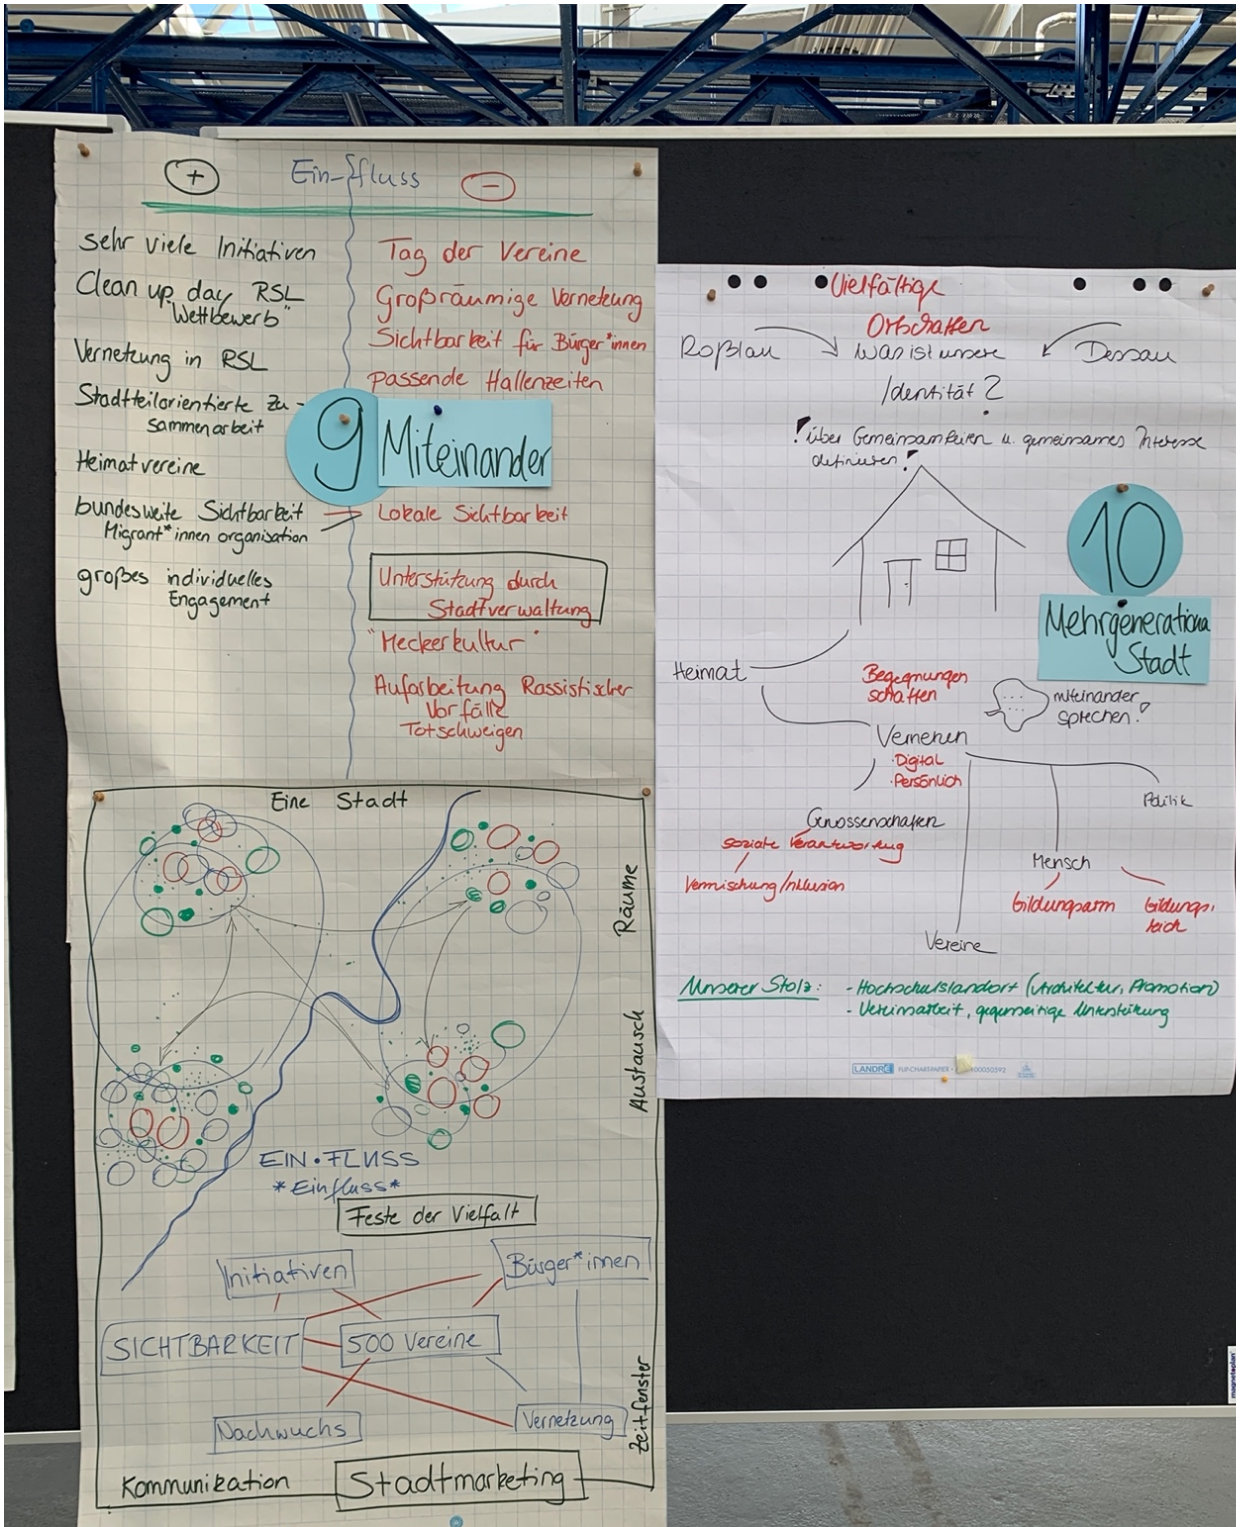 + Ein-fluss -
sehr viele Initiativen
Clean up day RSL
"Wettbewerb"
Vernetzung in RSL
Stadtteilorientierte Zu-
sammenarbeit
Heimatvereine
bundesweite Sichtbarkeit
Migrant*innen organisation
großes individuelles
Engagement
Tag der Vereine
Großräumige Vernetzung
Sichtbarkeit für Bürger*innen
passende Hallenzeiten
9 Miteinander
Lokale Sichtbarkeit
Unterstützung durch
Stadtverwaltung
"Meckerkultur"
Aufarbeitung Rassistischer
Vorfälle
Totschweigen
Eine Stadt
Räume
Austausch
Zeitfenster
EIN•FLUSS
*Einfluss*
Feste der Vielfalt
Initiativen
Bürger*innen
SICHTBARKEIT
500 Vereine
Nachwuchs
Vernetzung
Kommunikation
Stadtmarketing
Vielfältige
Ortschaften
Roßlau
Was ist unsere
Dessau
Identität?
über Gemeinsamkeiten u. gemeinsames Interesse
definieren!
10
Mehrgenerationa
Stadt
Heimat
Begegnungen
schaffen
miteinander
sprechen!
Vernetzen
·Digital
·Persönlich
Politik
Genossenschaften
soziale Verantwortung
Vermischung/Inklusion
Mensch
Bildungsarm
Bildungs-
reich
Vereine
Unserer Stolz:
- Hochschulstandort (Architektur, Promotion)
- Vereinsarbeit, gegenseitige Unterstützung
LANDRÉ
magnetoplan